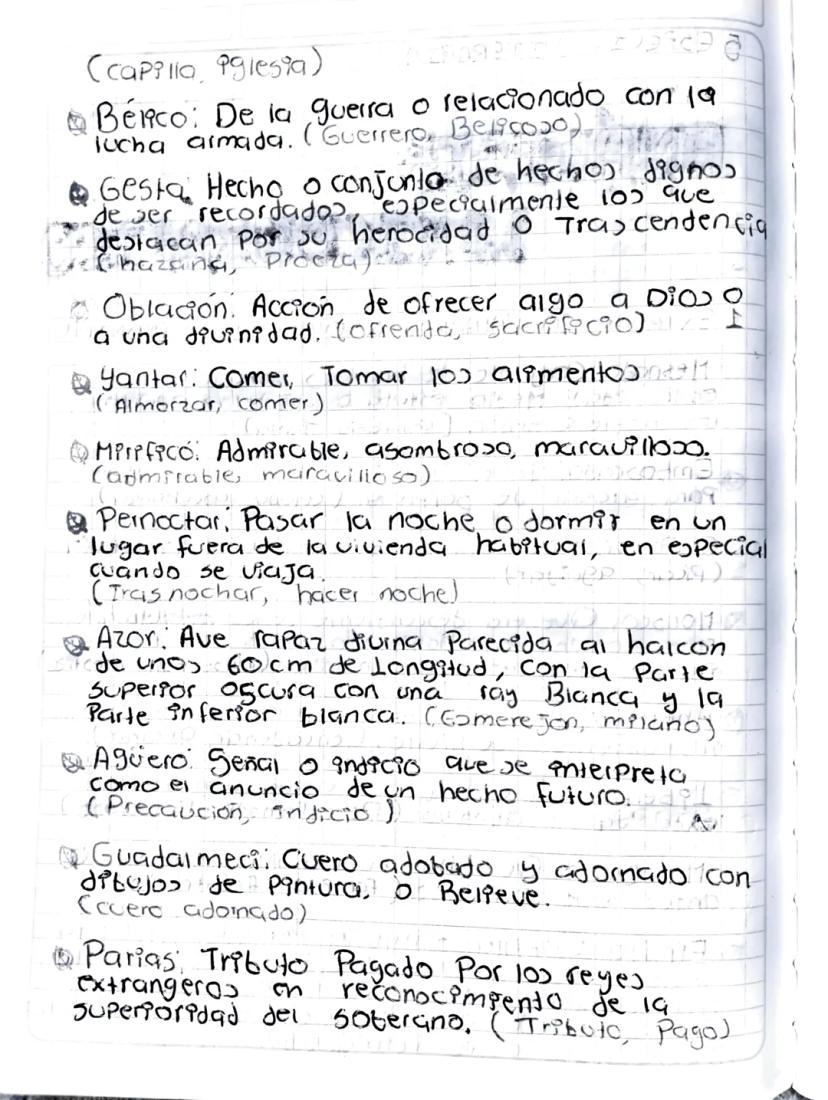 (capilla, iglesia)
Bélico: De la guerra o relacionado con la
lucha armada. (Guerrero, Belicoso)
Gesta. Hecho o conjunto de hechos dignos
de ser recordados, especialmente los que
destacan por su herocidad o Trascendencia
(hazaña, Proeza)
Oblación: Acción de ofrecer algo a Dios O
a una divinidad. (ofrenda, sacrificio) 1
Yantar: Comer, Tomar los alimentos
(Almorzar, comer)
Mirífico: Admirable, asombroso, maravilloso.
(admirable, maravilloso)
Pernoctar: Pasar la noche o dormir en un
lugar fuera de la vivienda habitual, en especial
cuando se viaja.
(Trasnochar, hacer noche)
Azor: Ave rapaz diurna Parecida al halcon
de unos 60 cm de Longitud, con la Parte
superior oscura con una ray Blanca y la
Parte inferior blanca. (Esmerejon, milano)
Agüero: Señal o indicio que se interpreta
como el anuncio de un hecho futuro.
(Precaución, indicio)
Guadalmeci: Cuero adobado y adornado con
dibujos de Pintura, o Relieve.
(cuero adornado)
Parias: Tributo Pagado Por los reyes
extrangeros en reconocimiento de la
superioridad del soberano. (Tributo, Pago)